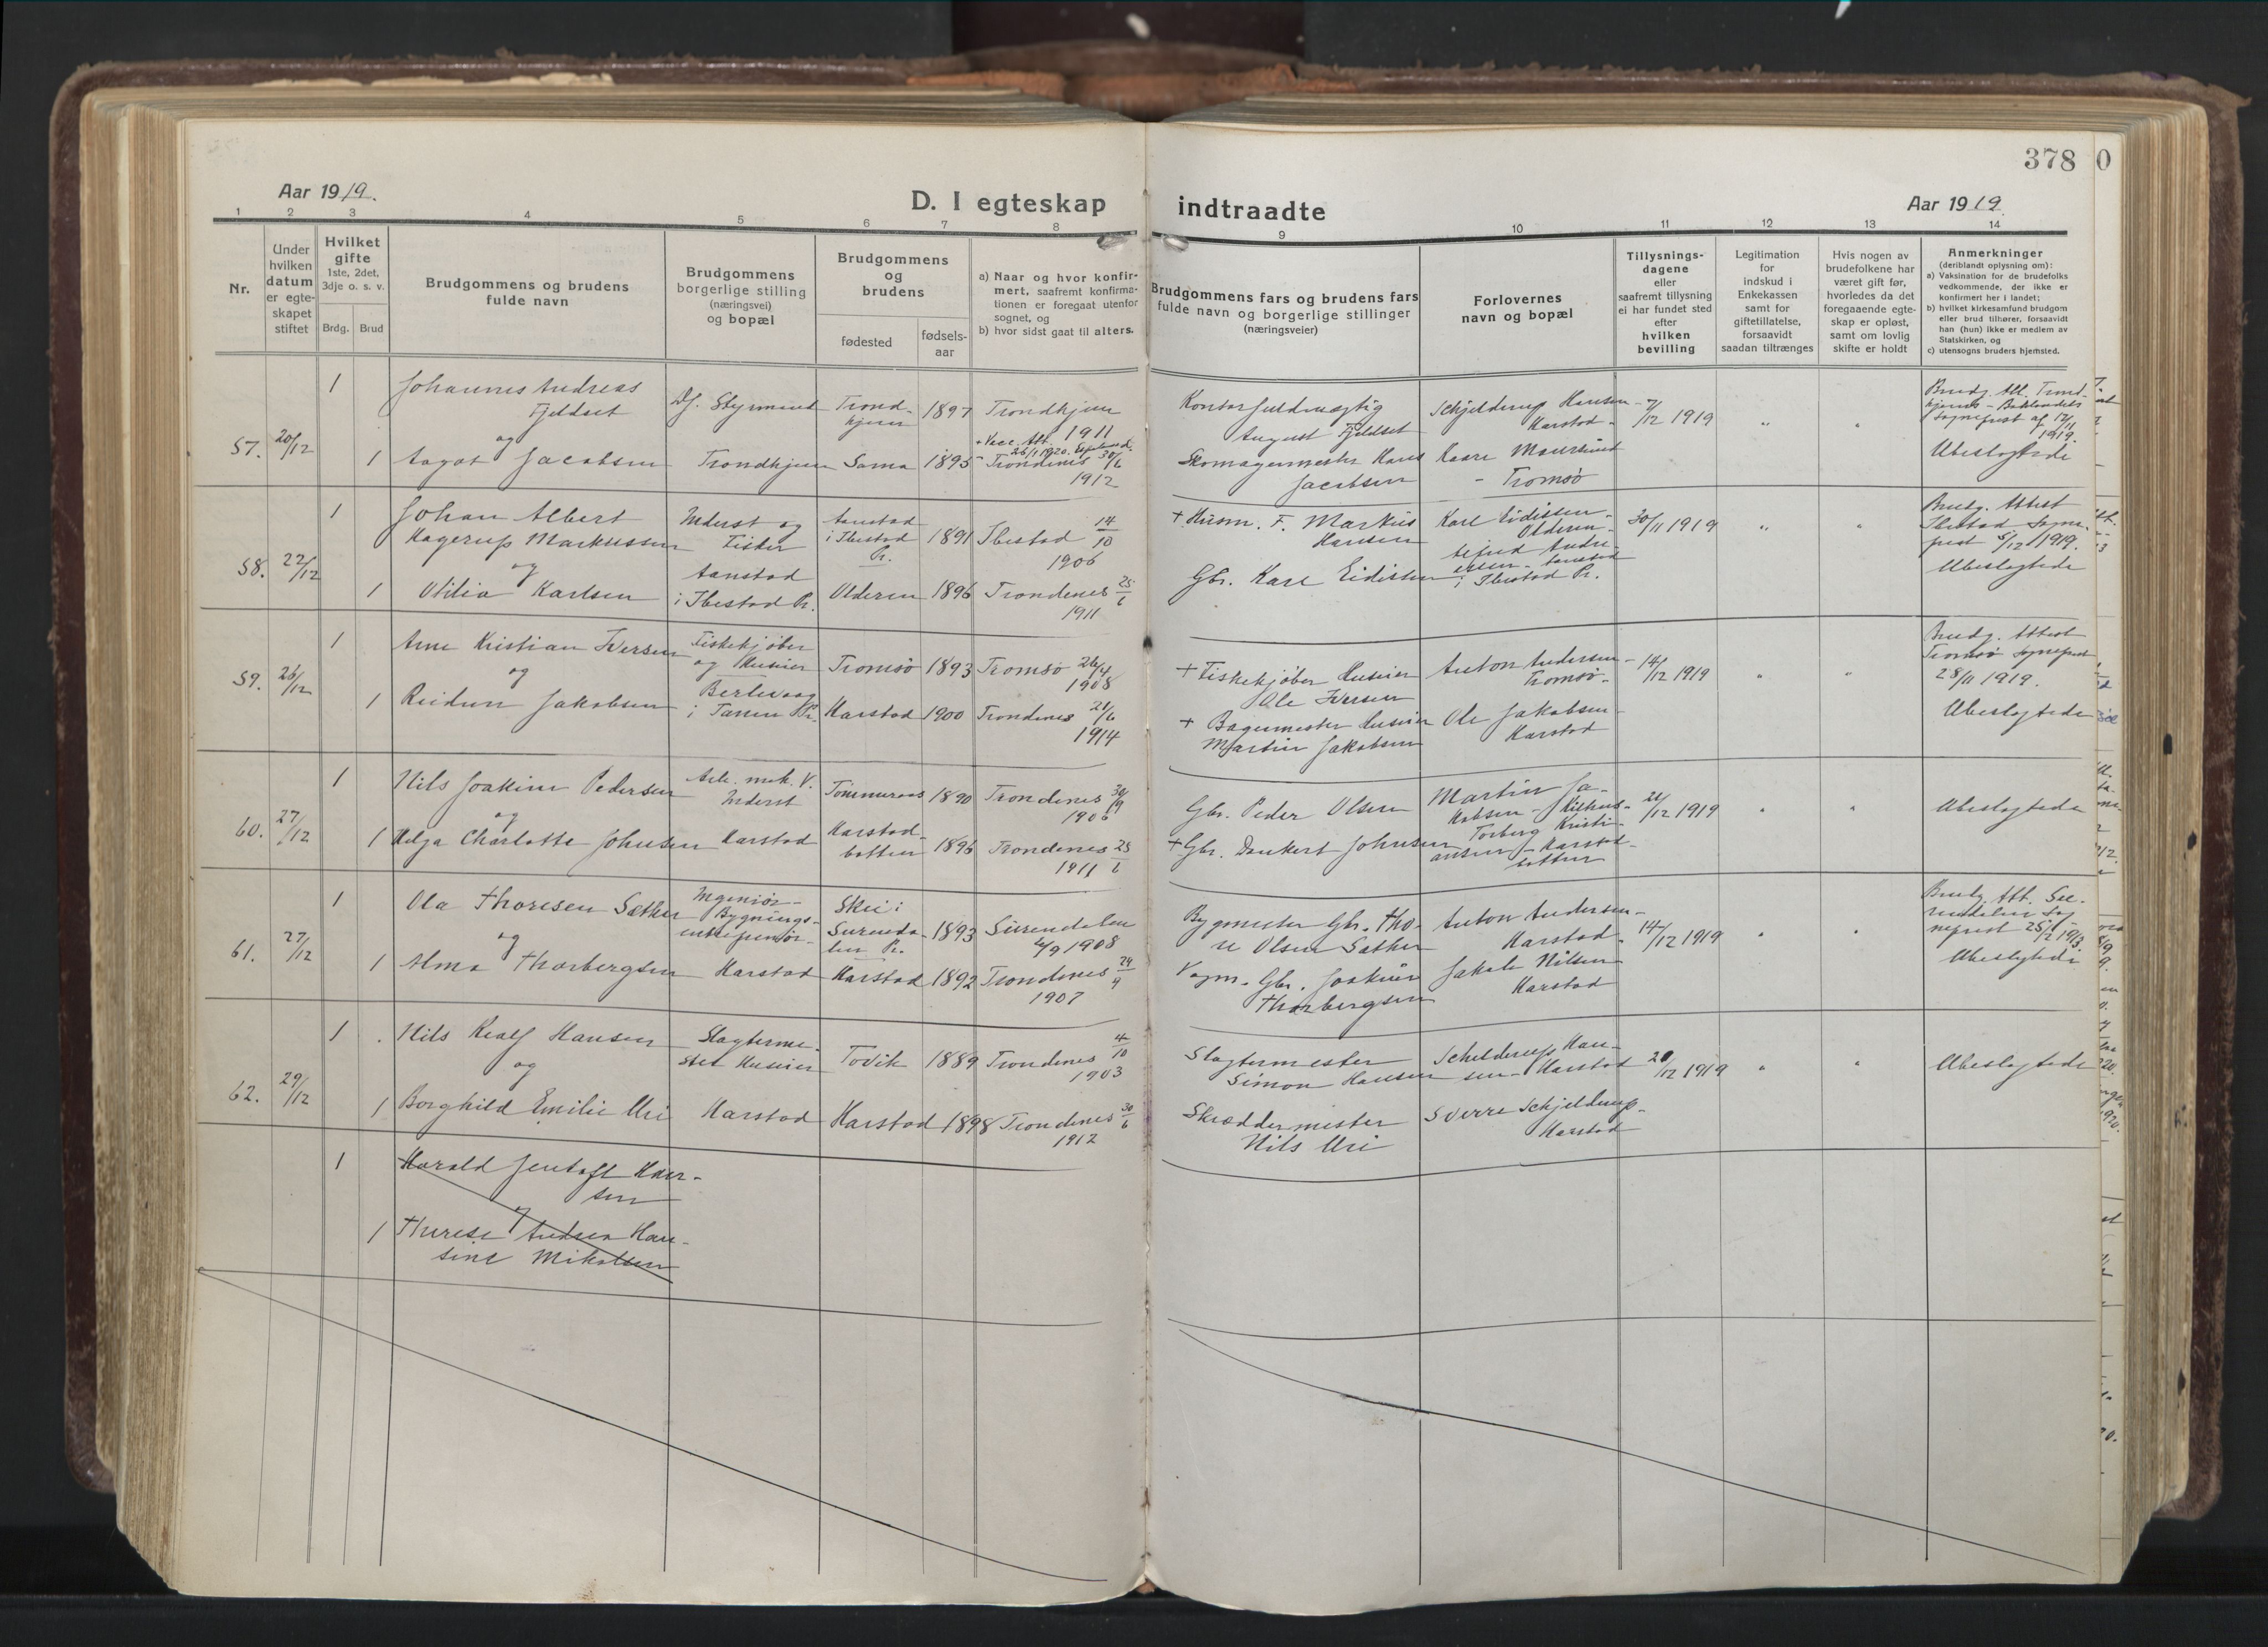 378
0
Aar 1919.
D. I egteskap
indtraadte
Aar 1919.
1
2
3
4
5
6
7
8
9
10
11
12
13
14
Nr.
Under
hvilken
datum
er egte-
skapet
stiftet
Hvilket
gifte
1ste, 2det,
3dje o. s. v.
Brdg.
Brud
Brudgommens og brudens
fulde navn
Brudgommens
borgerlige stilling
(næringsvei)
og bopæl
Brudgommens
og
brudens
fødested
fødsels-
aar
a) Naar og hvor konfir-
mert, saafremt konfirma-
tionen er foregaat utenfor
sognet, og
b) hvor sidst gaat til alters.
Brudgommens fars og brudens fars
fulde navn og borgerlige stillinger
(næringsveier)
Forlovernes
navn og bopæl
Tillysnings-
dagene
eller
saafremt tillysning
ei har fundet sted
efter
hvilken
bevilling
Legitimation
for
indskud i
Enkekassen
samt for
giftetillatelse,
forsaavidt
saadan tiltrænges
Hvis nogen av
brudefolkene har
været gift før,
hvorledes da det
foregaaende egte-
skap er opløst,
samt om lovlig
skifte er holdt
Anmerkninger
(deriblandt oplysning om):
a) Vaksination for de brudefolks
vedkommende, der ikke er
konfirmert her i landet;
b) hvilket kirkesamfund brudgom
eller brud tilhører, forsaavidt
han (hun) ikke er medlem av
Statskirken, og
c) utensogns bruders hjemsted.
57.
20/12
1
Johannes Andreas
Fjeldset
og
1
Aagot Jacobsen
Styrmand
Trondhjem
Trond-
hjem
1897
Sama
1895
Trondhjem
1911
Trondenes 30/6
1912
Kontorfuldmægtig
August Fjeldset
Skomagermester Hans
Jacobsen
Schjelderup Hansen -
Harstad -
Kaare Maursund
- Tromsø
7/12 1919
"
"
Brudg. Att. Trond-
hjems - Baklandets
Sogneprest af 17/11
1919.
Ubeslegtede
58.
22/12
1
Johan Albert
Hagerup Markussen
og
1
Otilia Karlsen
Inderst og
Fisker
Aanstad
i Ibestad Pr.
Aanstad
i Ibestad
Pr.
1891
Olderen
1896
Ibestad 14/10
1906
Trondenes 25/6
1911
+ Husm. F. Markus
Hansen
Gbr. Karl Eidissen
Karl Eidissen -
Olderen -
Andre-
Aanstad
i Ibestad Pr.
30/11 1919
"
"
Brudg. Attest
Ibestad Sogne-
prest 5/12 1919.
Ubeslegtede
59.
26/12
1
Arne Kristian Iversen
og
1
Reidun Jakobsen
Fiskekjøber
og Huseier
Berlevaag
i Tanen Pr.
Tromsø
1893
Harstad
1900
Tromsø 26/4
1908
Trondenes 21/6
1914
+ Fiskekjøber Huseier
Ole Iversen
+ Bagermester Huseier
Martin Jakobsen
Anton Andersen -
Tromsø -
Ole Jakobsen -
Harstad
14/12 1919
"
"
Brudg. Attest
Tromsø Sogneprest
28/11 1919.
Ubeslegtede
60.
27/12
1
Nils Joakim Pedersen
og
1
Helga Charlotte Johnsen
Arb. mek. V.
Inderst
Harstad
Tømmeraas
1890
Harstad-
botten
1896
Trondenes 30/9
1906
Trondenes 25/6
1911
Gbr. Peder Olsen
+ Gbr. Dankert Johnsen
Martin Ja-
kobsen -
Torberg Kristi-
ansen - Harstad-
botten
21/12 1919
"
"
Ubeslegtede
61.
27/12
1
Ola Thoresen Sæther
og
1
Alma Thorbergsen
Ingeniør -
Bygnings-
entreprenør -
Harstad
Skei i
Surenda-
len Pr.
1893
Harstad
1892
Surendalen
4/9 1908
Trondenes 29/9
1907
Bygmester Gbr. Tho-
re Olsen Sæther
Vogm. Gbr. Joakim
Thorbergsen
Anton Andersen -
Harstad -
Jakob Nilsen
Harstad
14/12 1919
"
"
Brudg. Att. Su-
rendalen Sog-
neprest 25/2 1913.
Ubeslegtede
62.
29/12
1
Nils Realf Hansen
og
1
Borghild Emilie Uri
Slagterme-
ster Huseier
Harstad
Tovik
1889
Harstad
1898
Trondenes 4/10
1903
Trondenes 30/6
1912
Slagtermester
Simon Hansen
Skræddermester
Nils Uri
Schelderup Han-
sen - Harstad
Sverre Schjelderup -
Harstad
21/12 1919
"
"
Ubeslegtede
1
Harald Jentoft Han-
sen
og
1
Therese Andrea Han-
sine Mikalsen